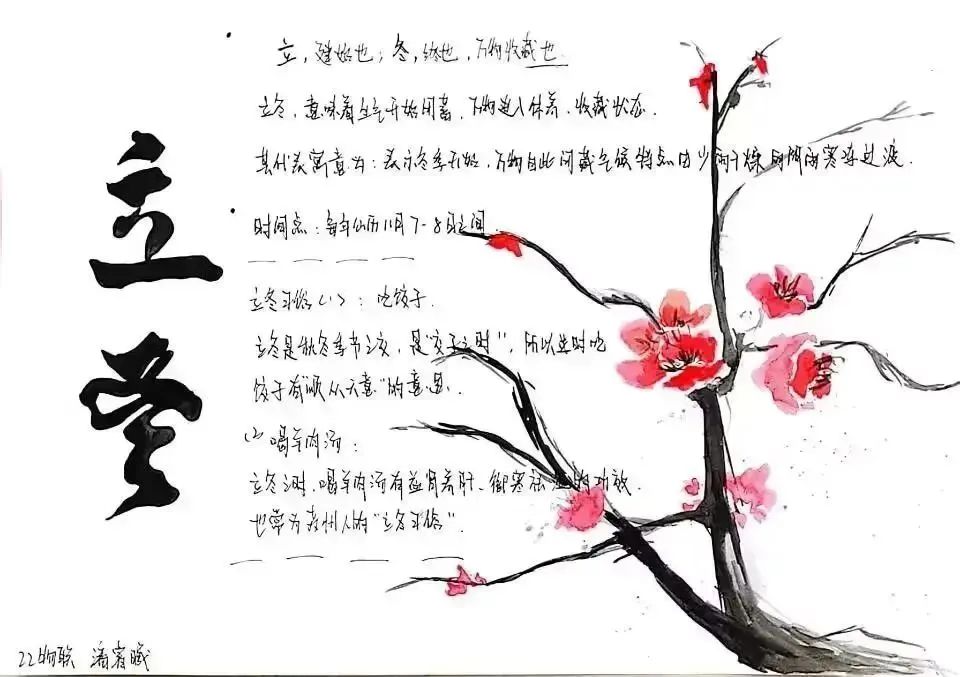 立冬
立，建始也；冬，终也，万物收藏也.
立冬，意味着生气开始闭蓄，万物进入休养、收藏状态.
其代表寓意为：表示冬季开始，万物自此闭藏气候特点由少雨干燥向阴雨寒冻过渡.
时间点：每年公历11月7-8日之间
立冬习俗（1）：吃饺子.
立冬是秋冬季节之交，是"交子之时"，所以这时吃
饺子有顺从天意"的意思.
（2）喝羊肉汤：
立冬之时、喝羊肉汤有益肾养肝、御寒祛 的功效.
也常为 州人的"立冬习俗".
22物联 潘 曦